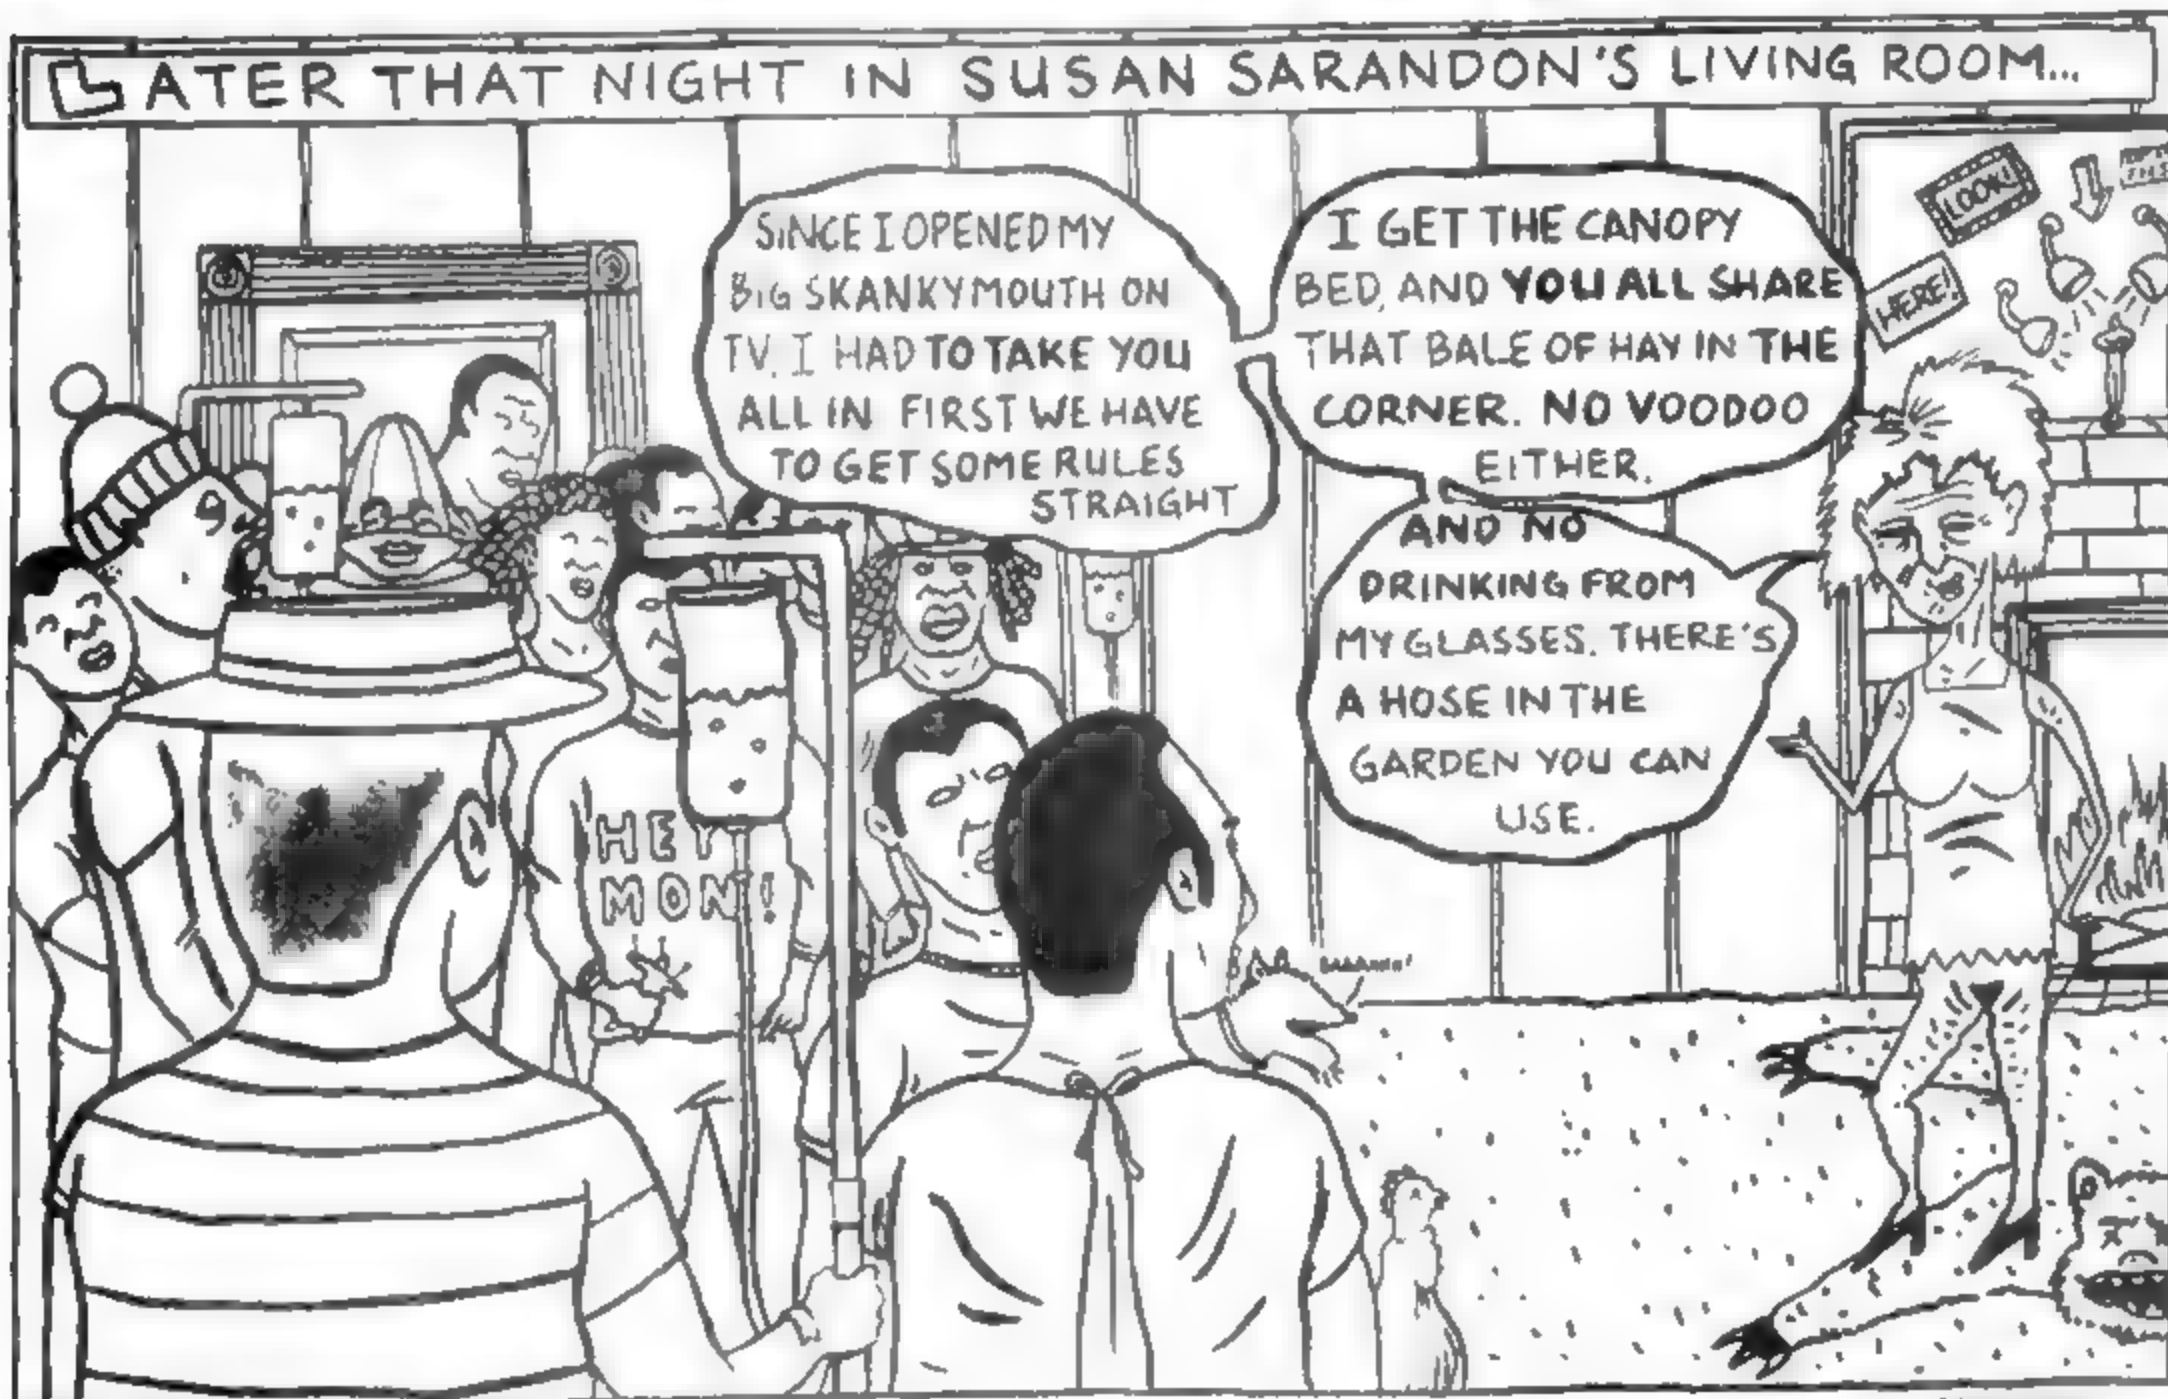 LATER THAT NIGHT IN SUSAN SARANDON'S LIVING ROOM...
SINCE I OPENED MY
BIG SKANKY MOUTH ON
TV. I HAD TO TAKE YOU
ALL IN FIRST WE HAVE
TO GET SOME RULES
STRAIGHT
I GET THE CANOPY
BED, AND YOU ALL SHARE
THAT BALE OF HAY IN THE
CORNER. NO VOODOO
EITHER.
AND NO
DRINKING FROM
MY GLASSES. THERE'S
A HOSE IN THE
GARDEN YOU CAN
USE.
LOOK!
HERE!
HEY
MON!